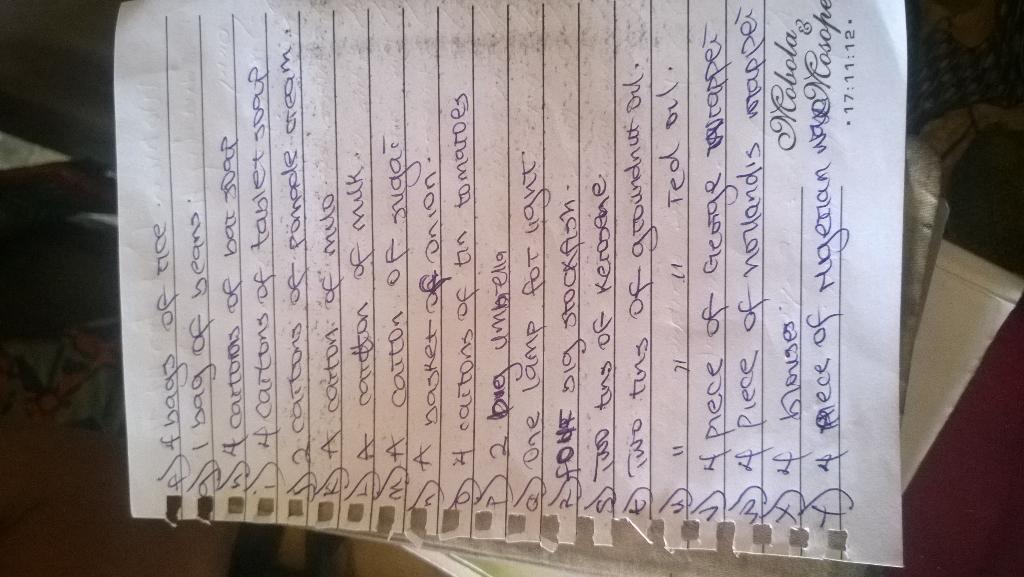 f) 4 bags of rice
g) 1 bag of beans.
h) 4 cartons of bar soap
i) 4 cartons of tablet soap
j) 2 cartons of pomade cream.
k) A carton of milo
L) A carton of milk.
m) A carton of sugar
n) A basket of onion.
o) 4 cartons of tin tomatoes
P) 2 big umbrella
Q) One lamp for light.
R) four big stockfish.
S) Two tins of kerosene
t) Two tins of groundnut oil.
u) " " " red oil.
v) 4 piece of George wrapper
w) 4 piece of hollandis wrapper
x) 4 blouses
y) 4 piece of Nigerian
Mabola
&
Masope
.17:11:12.